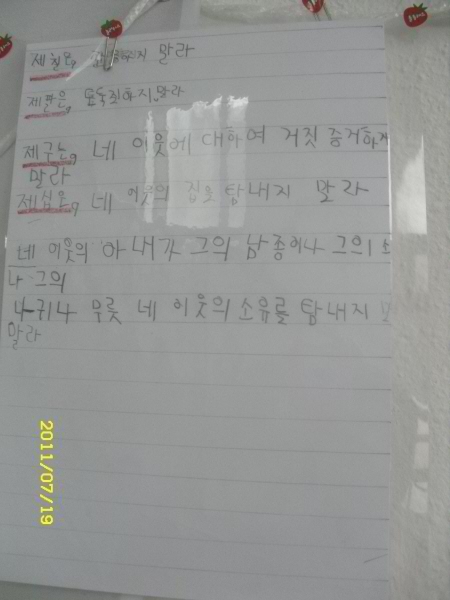 제칠은, 하지 말라
제팔은, 도둑질하지 말라
제구는, 네 이웃에 대하여 거짓 증거하지
말라
제십은, 네 이웃의 집을 탐내지 말라
네 이웃의 아내나 그의 남종이나 그의
나 그의
나귀나 무릇 네 이웃의 소유를 탐내지
말라
2011/07/19